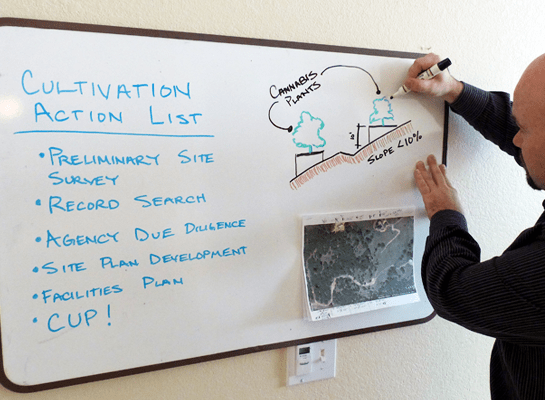 CULTIVATION
ACTION LIST
• PRELIMINARY SITE
SURVEY
• RECORD SEARCH
• AGENCY DUE DILIGENCE
• SITE PLAN DEVELOPMENT
• FACILITIES PLAN
• CUP!
CANNABIS
PLANTS
SLOPE <10%